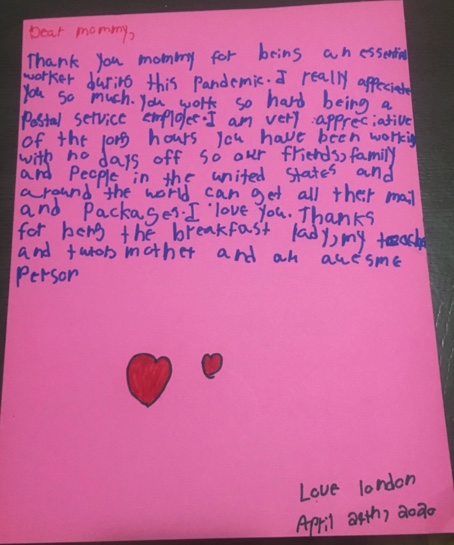 Dear mommy,
Thank you mommy for being an essential
worker during this Pandemic. I really appreciate
you so much. You work so hard being a
Postal service employee. I am very appreciative
of the long hours you have been working
with no days off so our friends, family
and People in the united States and
around the world can get all ther mail
and Packages. I love you. Thanks
for being the breakfast lady, my teacher
and tutor, mother and an auesme
Person
Love london
April 24th, 2020